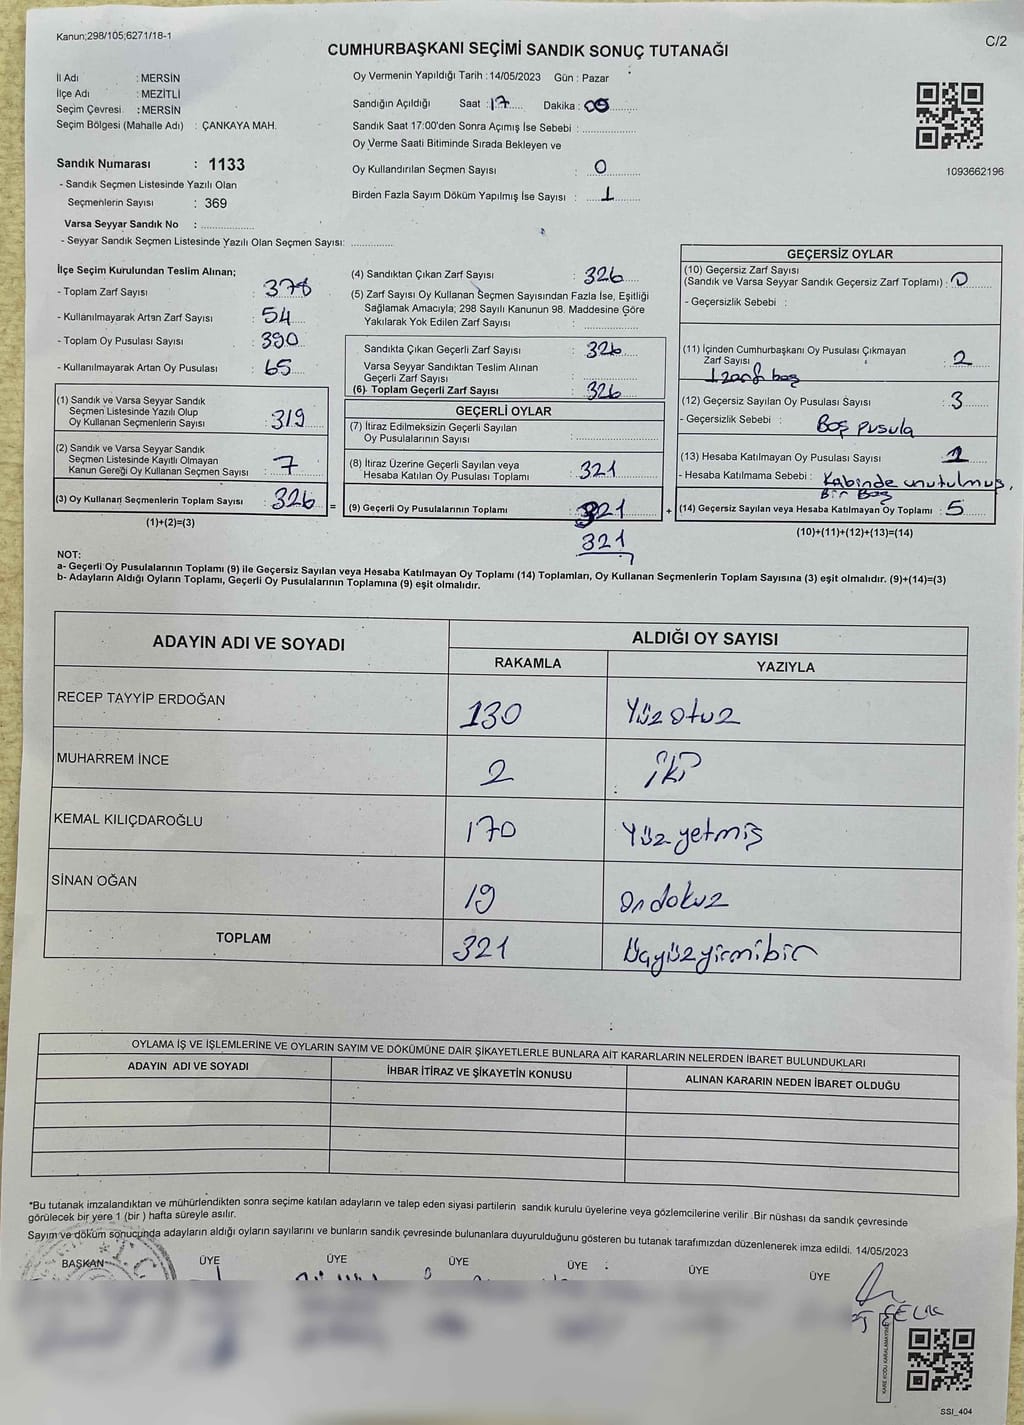 Kanun;298/105;6271/18-1
C/2
CUMHURBAŞKANI SEÇİMİ SANDIK SONUÇ TUTANAĞI
İl Adı : MERSİN
İlçe Adı : MEZİTLİ
Seçim Çevresi : MERSİN
Seçim Bölgesi (Mahalle Adı) : ÇANKAYA MAH.
Sandık Numarası : 1133
- Sandık Seçmen Listesinde Yazılı Olan
Seçmenlerin Sayısı : 369
Varsa Seyyar Sandık No :
- Seyyar Sandık Seçmen Listesinde Yazılı Olan Seçmen Sayısı:
Oy Vermenin Yapıldığı Tarih : 14/05/2023 Gün : Pazar
Sandığın Açıldığı Saat : 17 Dakika : 05
Sandık Saat 17:00'den Sonra Açımış İse Sebebi :
Oy Verme Saati Bitiminde Sırada Bekleyen ve
Oy Kullandırılan Seçmen Sayısı : 0
Birden Fazla Sayım Döküm Yapılmış İse Sayısı : 1
1093662196
İlçe Seçim Kurulundan Teslim Alınan;
- Toplam Zarf Sayısı : 378
- Kullanılmayarak Artan Zarf Sayısı : 54
- Toplam Oy Pusulası Sayısı : 390
- Kullanılmayarak Artan Oy Pusulası : 65
(1) Sandık ve Varsa Seyyar Sandık
Seçmen Listesinde Yazılı Olup
Oy Kullanan Seçmenlerin Sayısı : 319
(2) Sandık ve Varsa Seyyar Sandık
Seçmen Listesinde Kayıtlı Olmayan
Kanun Gereği Oy Kullanan Seçmen Sayısı : 7
(3) Oy Kullanan Seçmenlerin Toplam Sayısı : 326
(1)+(2)=(3)
(4) Sandıktan Çıkan Zarf Sayısı : 326
(5) Zarf Sayısı Oy Kullanan Seçmen Sayısından Fazla İse, Eşitliği
Sağlamak Amacıyla; 298 Sayılı Kanunun 98. Maddesine Göre
Yakılarak Yok Edilen Zarf Sayısı :
Sandıkta Çıkan Geçerli Zarf Sayısı : 326
Varsa Seyyar Sandıktan Teslim Alınan
Geçerli Zarf Sayısı :
(6) Toplam Geçerli Zarf Sayısı : 326
=
GEÇERLİ OYLAR
(7) İtiraz Edilmeksizin Geçerli Sayılan
Oy Pusulalarının Sayısı :
(8) İtiraz Üzerine Geçerli Sayılan veya
Hesaba Katılan Oy Pusulası Toplamı : 321
(9) Geçerli Oy Pusulalarının Toplamı : 321
321
+
GEÇERSİZ OYLAR
(10) Geçersiz Zarf Sayısı
(Sandık ve Varsa Seyyar Sandık Geçersiz Zarf Toplamı) : 0
- Geçersizlik Sebebi :
(11) İçinden Cumhurbaşkanı Oy Pusulası Çıkmayan
Zarf Sayısı : 2
1 zarf boş
(12) Geçersiz Sayılan Oy Pusulası Sayısı : 3
- Geçersizlik Sebebi : Boş pusula
(13) Hesaba Katılmayan Oy Pusulası Sayısı :
- Hesaba Katılmama Sebebi : Kabinde unutulmuş,
Bir Boş
(14) Geçersiz Sayılan veya Hesaba Katılmayan Oy Toplamı : 5
(10)+(11)+(12)+(13)=(14)
NOT:
a- Geçerli Oy Pusulalarının Toplamı (9) ile Geçersiz Sayılan veya Hesaba Katılmayan Oy Toplamı (14) Toplamları, Oy Kullanan Seçmenlerin Toplam Sayısına (3) eşit olmalıdır. (9)+(14)=(3)
b- Adayların Aldığı Oyların Toplamı, Geçerli Oy Pusulalarının Toplamına (9) eşit olmalıdır.
ADAYIN ADI VE SOYADI
ALDIĞI OY SAYISI
RAKAMLA YAZIYLA
RECEP TAYYİP ERDOĞAN 130 Yüzotuz
MUHARREM İNCE 2 iki
KEMAL KILIÇDAROĞLU 170 Yüzyetmiş
SİNAN OĞAN 19 Ondokuz
TOPLAM 321 Üçyüzyirmibir
OYLAMA İŞ VE İŞLEMLERİNE VE OYLARIN SAYIM VE DÖKÜMÜNE DAİR ŞİKAYETLERLE BUNLARA AİT KARARLARIN NELERDEN İBARET BULUNDUKLARI
ADAYIN ADI VE SOYADI İHBAR İTİRAZ VE ŞİKAYETİN KONUSU ALINAN KARARIN NEDEN İBARET OLDUĞU
*Bu tutanak imzalandıktan ve mühürlendikten sonra seçime katılan adayların ve talep eden siyasi partilerin sandık kurulu üyelerine veya gözlemcilerine verilir. Bir nüshası da sandık çevresinde
görülecek bir yere 1 (bir) hafta süreyle asılır.
Sayım ve döküm sonucunda adayların aldığı oyların sayılarını ve bunların sandık çevresinde bulunanlara duyurulduğunu gösteren bu tutanak tarafımızdan düzenlenerek imza edildi. 14/05/2023
BAŞKAN ÜYE ÜYE ÜYE ÜYE ÜYE ÜYE
ÇELİK
KARE KODU KARALAMAYINIZ
SSI_404